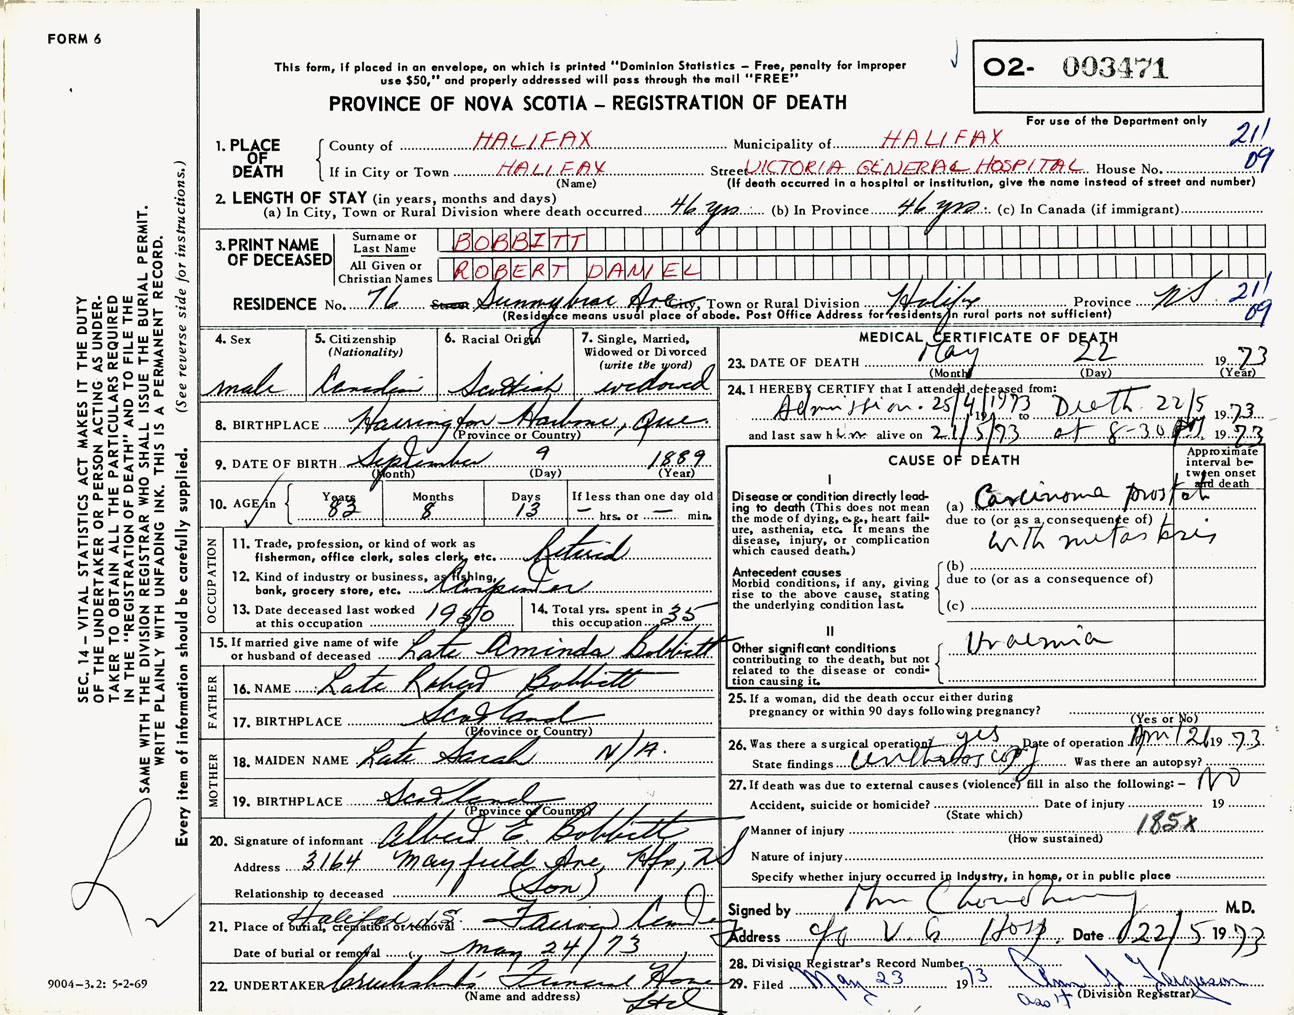 FORM 6
This form, if placed in an envelope, on which is printed "Dominion Statistics – Free, penalty for improper
use $50," and properly addressed will pass through the mail "FREE"
PROVINCE OF NOVA SCOTIA – REGISTRATION OF DEATH
02- 003471
For use of the Department only
1. PLACE OF DEATH
County of HALIFAX Municipality of HALIFAX 211
If in City or Town HALIFAX Street VICTORIA GENERAL HOSPITAL House No. 09
(Name) (If death occurred in a hospital or institution, give the name instead of street and number)
2. LENGTH OF STAY (in years, months and days)
(a) In City, Town or Rural Division where death occurred 46 yrs. (b) In Province 46 yrs. (c) In Canada (if immigrant)
3. PRINT NAME OF DECEASED
Surname or Last Name BOBBITT
All Given or Christian Names ROBERT DANIEL
RESIDENCE No. 76 Street Sunnybrae Ave City, Town or Rural Division Halifx Province NS 211
(Residence means usual place of abode. Post Office Address for residents in rural parts not sufficient) 09
4. Sex
male
5. Citizenship
(Nationality)
Canadian
6. Racial Origin
Scottish
7. Single, Married,
Widowed or Divorced
(write the word)
widowed
8. BIRTHPLACE Harrington Harbour, Que.
(Province or Country)
9. DATE OF BIRTH September 9 1889
(Month) (Day) (Year)
10. AGE in Years 83 Months 8 Days 13 If less than one day old
— hrs. or — min.
OCCUPATION
11. Trade, profession, or kind of work as
fisherman, office clerk, sales clerk, etc. Retired
12. Kind of industry or business, as fishing,
bank, grocery store, etc. Carpenter
13. Date deceased last worked
at this occupation 1950
14. Total yrs. spent in
this occupation 35
15. If married give name of wife
or husband of deceased Late Aminda Bobbitt
FATHER
16. NAME Late Robert Bobbitt
17. BIRTHPLACE Scotland
(Province or Country)
MOTHER
18. MAIDEN NAME Late Sarah N/A.
19. BIRTHPLACE Scotland
(Province or Country)
20. Signature of informant Albert E. Bobbitt
Address 3164 Mayfield Ave, Hfx, NS
Relationship to deceased (Son)
21. Place of burial, cremation or removal Halifax N.S. Fairview Cemetery
Date of burial or removal May 24/73
22. UNDERTAKER Cruikshank's Funeral Home
(Name and address) Ltd
MEDICAL CERTIFICATE OF DEATH
23. DATE OF DEATH May 22 1973
(Month) (Day) (Year)
24. I HEREBY CERTIFY that I attended deceased from:
Admission. 25/4/1973 19 to Death 22/5 1973
and last saw him alive on 21/5/73 at 8-30 PM 1973
CAUSE OF DEATH
Approximate
interval be-
tween onset
and death
I
Disease or condition directly lead-
ing to death (This does not mean
the mode of dying, e.g., heart fail-
ure, asthenia, etc. It means the
disease, injury, or complication
which caused death.)
(a) Carcinoma prostate
due to (or as a consequence of)
with metastasis
Antecedent causes
Morbid conditions, if any, giving
rise to the above cause, stating
the underlying condition last.
(b)
due to (or as a consequence of)
(c)
II
Other significant conditions
contributing to the death, but not
related to the disease or condi-
tion causing it.
Uraemia
25. If a woman, did the death occur either during
pregnancy or within 90 days following pregnancy?
(Yes or No)
26. Was there a surgical operation? yes Date of operation April 26 1973
State findings Was there an autopsy?
27. If death was due to external causes (violence) fill in also the following: – NO
Accident, suicide or homicide? Date of injury 19
(State which)
Manner of injury 185X
(How sustained)
Nature of injury
Specify whether injury occurred in industry, in home, or in public place
Signed by Choudhury M.D.
Address c/o V.G Hosp. Date 22/5 1973
28. Division Registrar's Record Number
29. Filed May 23 1973 Ferguson
Ass't (Division Registrar)
SEC. 14 – VITAL STATISTICS ACT MAKES IT THE DUTY
OF THE UNDERTAKER OR PERSON ACTING AS UNDER-
TAKER TO OBTAIN ALL THE PARTICULARS REQUIRED
IN THE "REGISTRATION OF DEATH" AND TO FILE THE
SAME WITH THE DIVISION REGISTRAR WHO SHALL ISSUE THE BURIAL PERMIT.
WRITE PLAINLY WITH UNFADING INK. THIS IS A PERMANENT RECORD.
Every item of information should be carefully supplied. (See reverse side for instructions.)
9004-3.2: 5-2-69